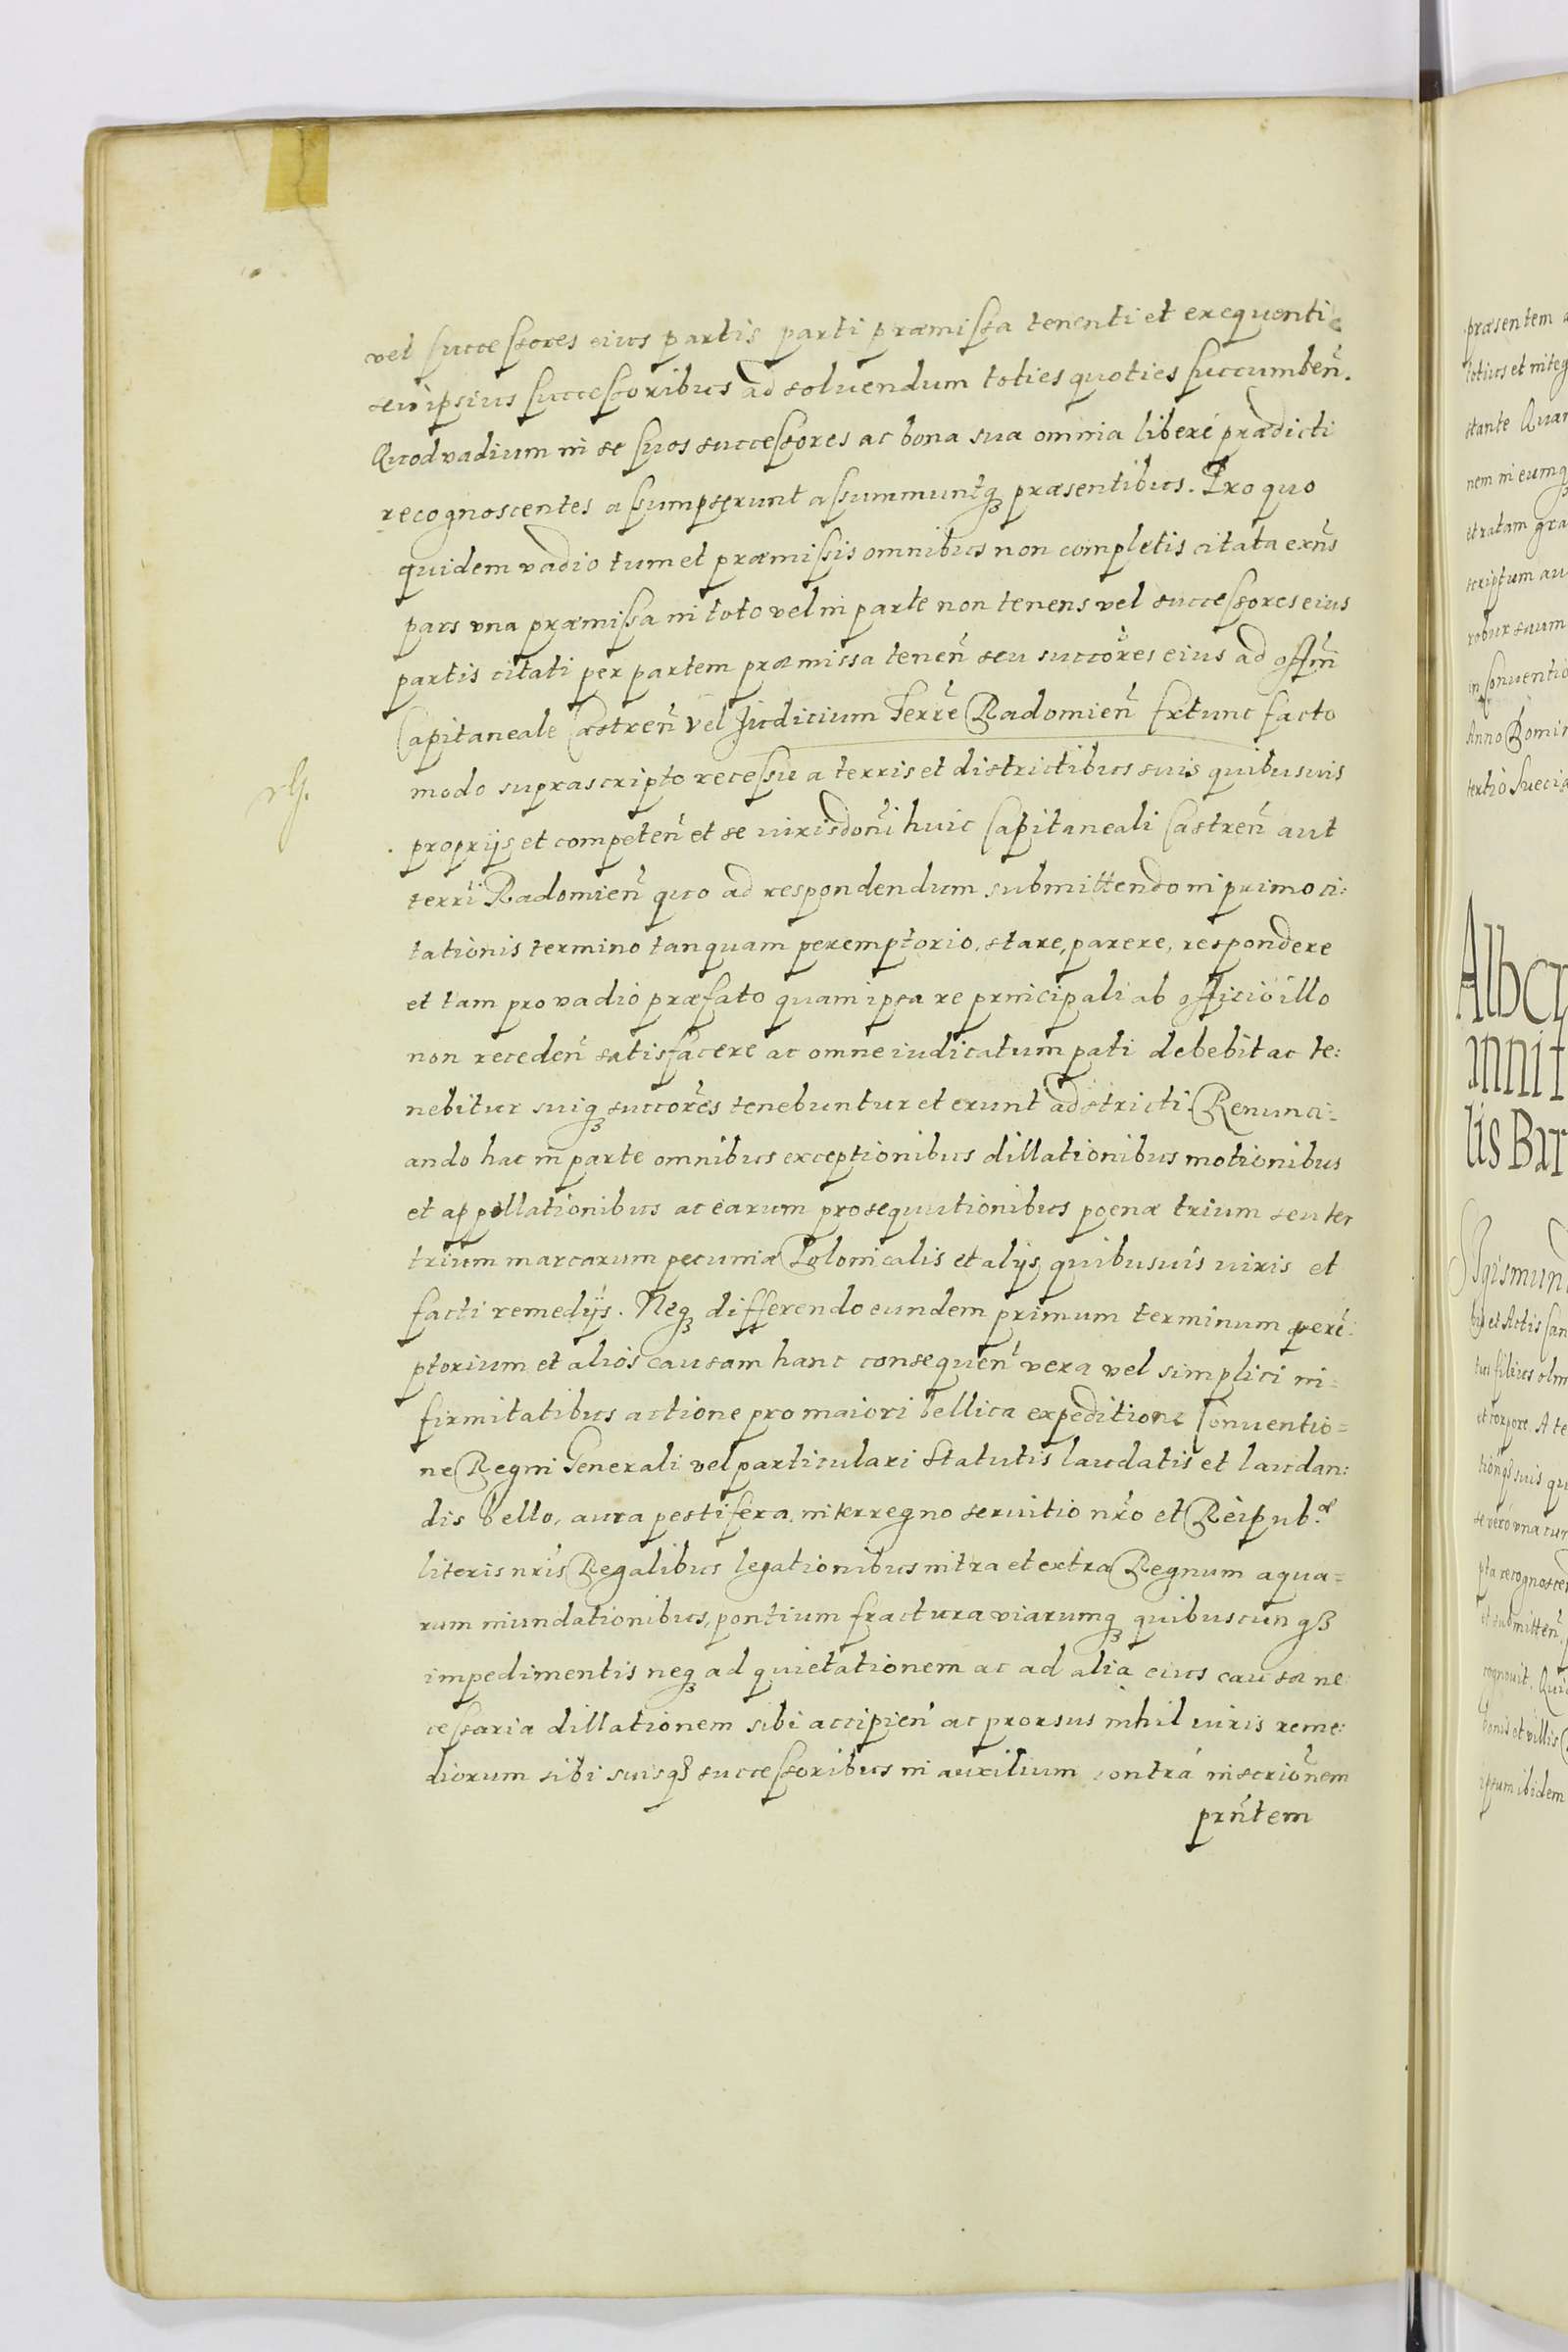 vel successores eius partis parti præmissa tenenti et exequenti
seu ipsius successoribus ad soluendum toties quoties succumbeñ.
Quod vadium in se suos successores ac bona sua omnia liberè prædicti
recognoscentes assumpserunt assummuntq₃ præsentibus. Pro quo
quidem vadio tum et præmissis omnibus non completis citata exñs
pars vna præmissa in toto vel in parte non tenens vel successores eius
partis citati per partem præmissa teneñ seu succo͠res eius ad offm̃
Capitaneale Castreñ vel Judicium Terr̃e Radomieñ Extunc facto
modo suprascripto recessu a terris et districtibus suis quibusuis
proprijs et competeñ et se iurisdoñi huic Capitaneali Castreñ aut
terr̃i Radomieñ quo ad respondendum submittendo in primo ci:
tationis termino tanquam peremptorio, stare, parere, respondere
et tam pro vadio præfato quam ipsa re principali ab officio illo
non recedeñ satisfacere ac omne iudicatum pati debebit ac te:
nebitur suiq₃ succor̃es tenebuntur et erunt adstricti. Renunci=
ando hac in parte omnibus exceptionibus dillationibus motionibus
et appellationibus ac earum prosequutionibus poenæ trium seu ter
trium marcarum pecuniæ Polonicalis et alijs quibusuis iuris et
facti remedijs. Neq₃ differendo eundem primum terminum perẽ:
ptorium et alios causam hanc consequeñ vera vel simplici in=
firmitatibus actione pro maiori bellica expeditione Conuentio=
ne Regni Generali vel particulari Statutis laudatis et laudan:
dis bello, aura pestifera, interregno seruitio nr̃o et Reipub.æ
literis nr̃is Regalibus legationibus intra et extra Regnum aqua=
rum inundationibus, pontium fractura viarumq₃ quibuscunq₃
impedimentis neq₃ ad quietationem ac ad alia eius causa ne:
cessaria dillationem sibi accipieñ ac prorsus nihil iuris reme:
diorum sibi suisq₃ successoribus in auxilium contrá inscrioñem
prñtem
præsentem
totius et integ
stante Quar
nem in eumq
et ratam gra
scriptum au
robur suum
in Conuentio
Anno Domin
tertio Sueciæ
Alber
innit
tis Bar
Sigismun
bus et Actis Can
tus filius olm
et corpore. A te
tionq₃ suis qu
se vero vna cum
pta recognoscen
et submitteñ
cognouit. Quia
bonis et villis
ipsum ibidem